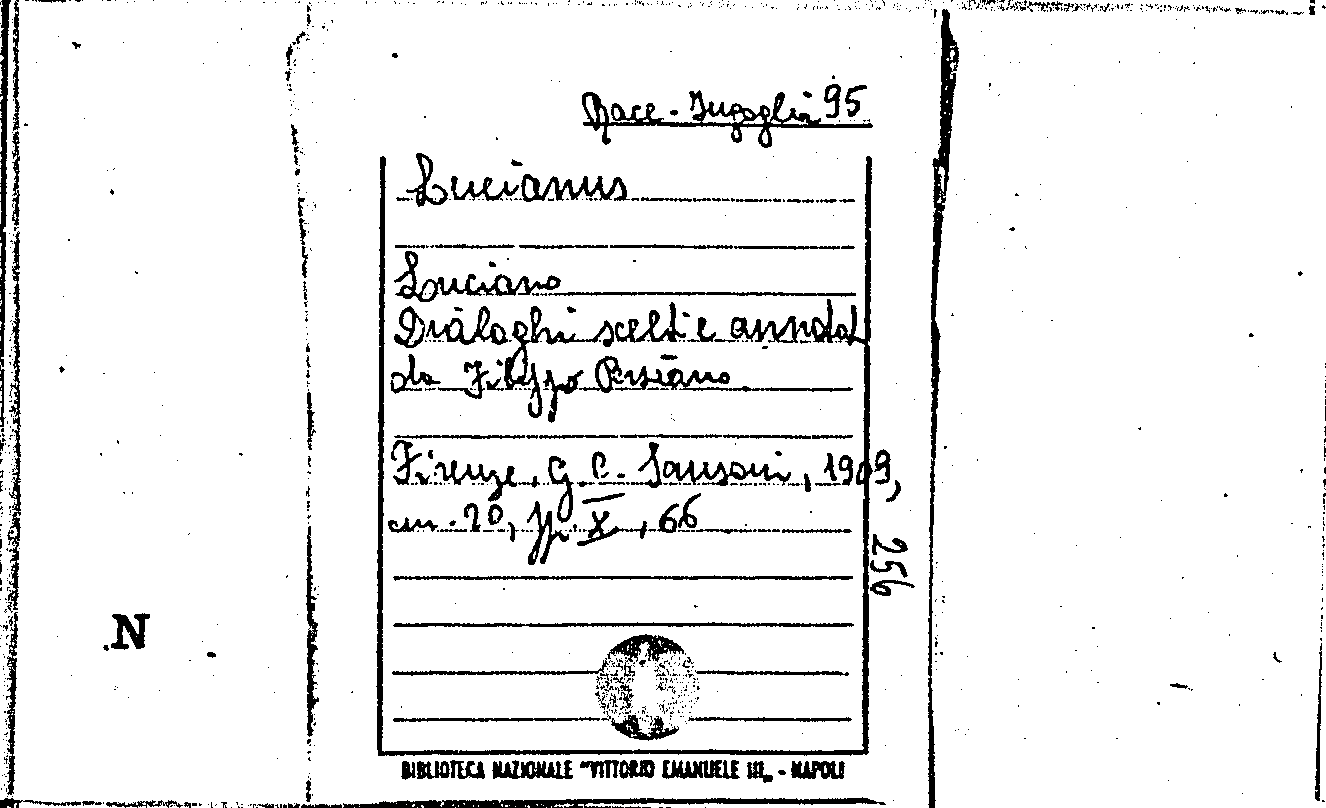 Race - Jugoglia 95
Lucianus
Luciano
Dialoghi scelti e annotat
da Filippo Persiano.
Firenze, G. C. Sansoni, 1909,
cm. 20, pp. X, 66
256
N
BIBLIOTECA NAZIONALE "VITTORIO EMANUELE III„ - NAPOLI